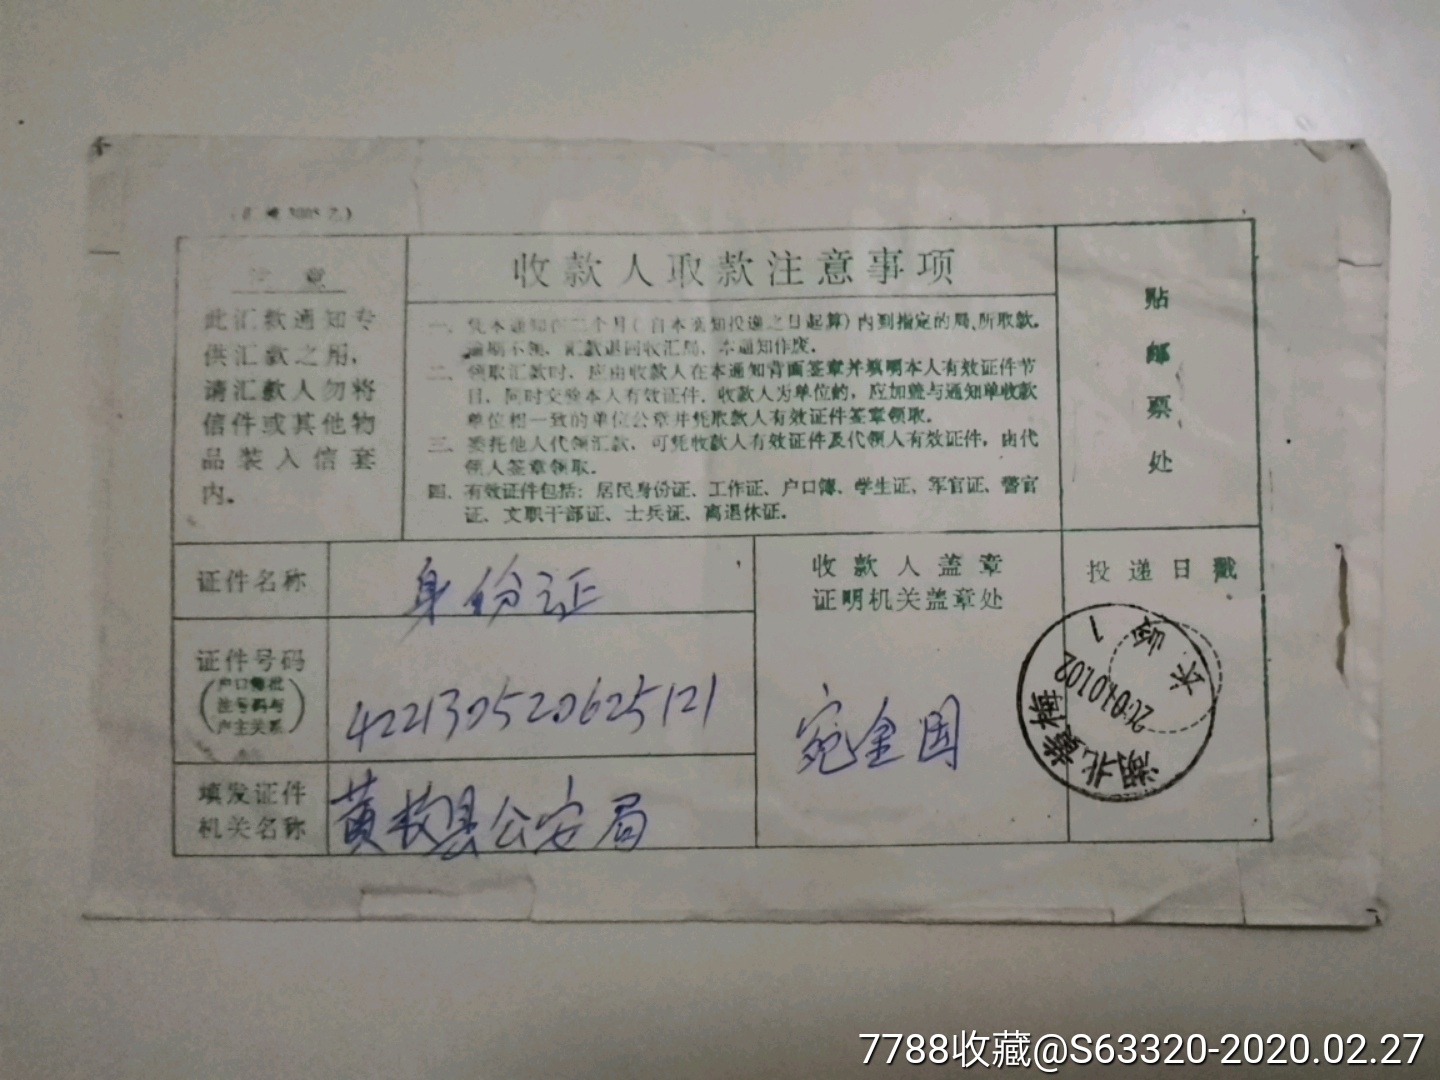 注意
此汇款通知专
供汇款之用，
请汇款人勿将
信件或其他物
品装入信套
内.
收款人取款注意事项
一、凭本通知在二个月(自本通知投递之日起算)内到指定的局、所取款.
逾期不领、汇款退回收汇局、本通知作废.
二、领取汇款时、应由收款人在本通知背面签章并填明本人有效证件节
目、同时交验本人有效证件. 收款人为单位的, 应加盖与通知单收款
单位相一致的单位公章并凭取款人有效证件签章领取.
三、委托他人代领汇款、可凭收款人有效证件及代领人有效证件, 由代
领人签章领取.
四、有效证件包括: 居民身份证、工作证、户口簿、学生证、军官证、警官
证、文职干部证、士兵证、离退休证.
贴
邮
票
处
证件名称
身份证
证件号码
(户口簿批
注号码与
户主关系)
422130520625121
填发证件
机关名称
黄梅县公安局
收款人盖章
证明机关盖章处
宛金国
投递日戳
湖北黄梅
1
7788收藏@S63320-2020.02.27